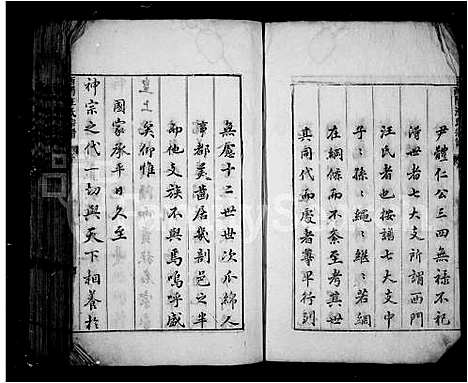 尹體仁公三四無祿不祀
潛世者七大支所謂西門
汪氏者也按譜七大支中
子子孫孫繩繩繼繼若綱
在綱條而不紊至考其世
其同代而處者尊卑行列
無慮十二世世次爪綿人
事都美菑居幾剖邑之半
即他支族不與焉嗚呼盛
矣仰惟
皇上
國家承平日久至
神宗之代一切與天下相養於